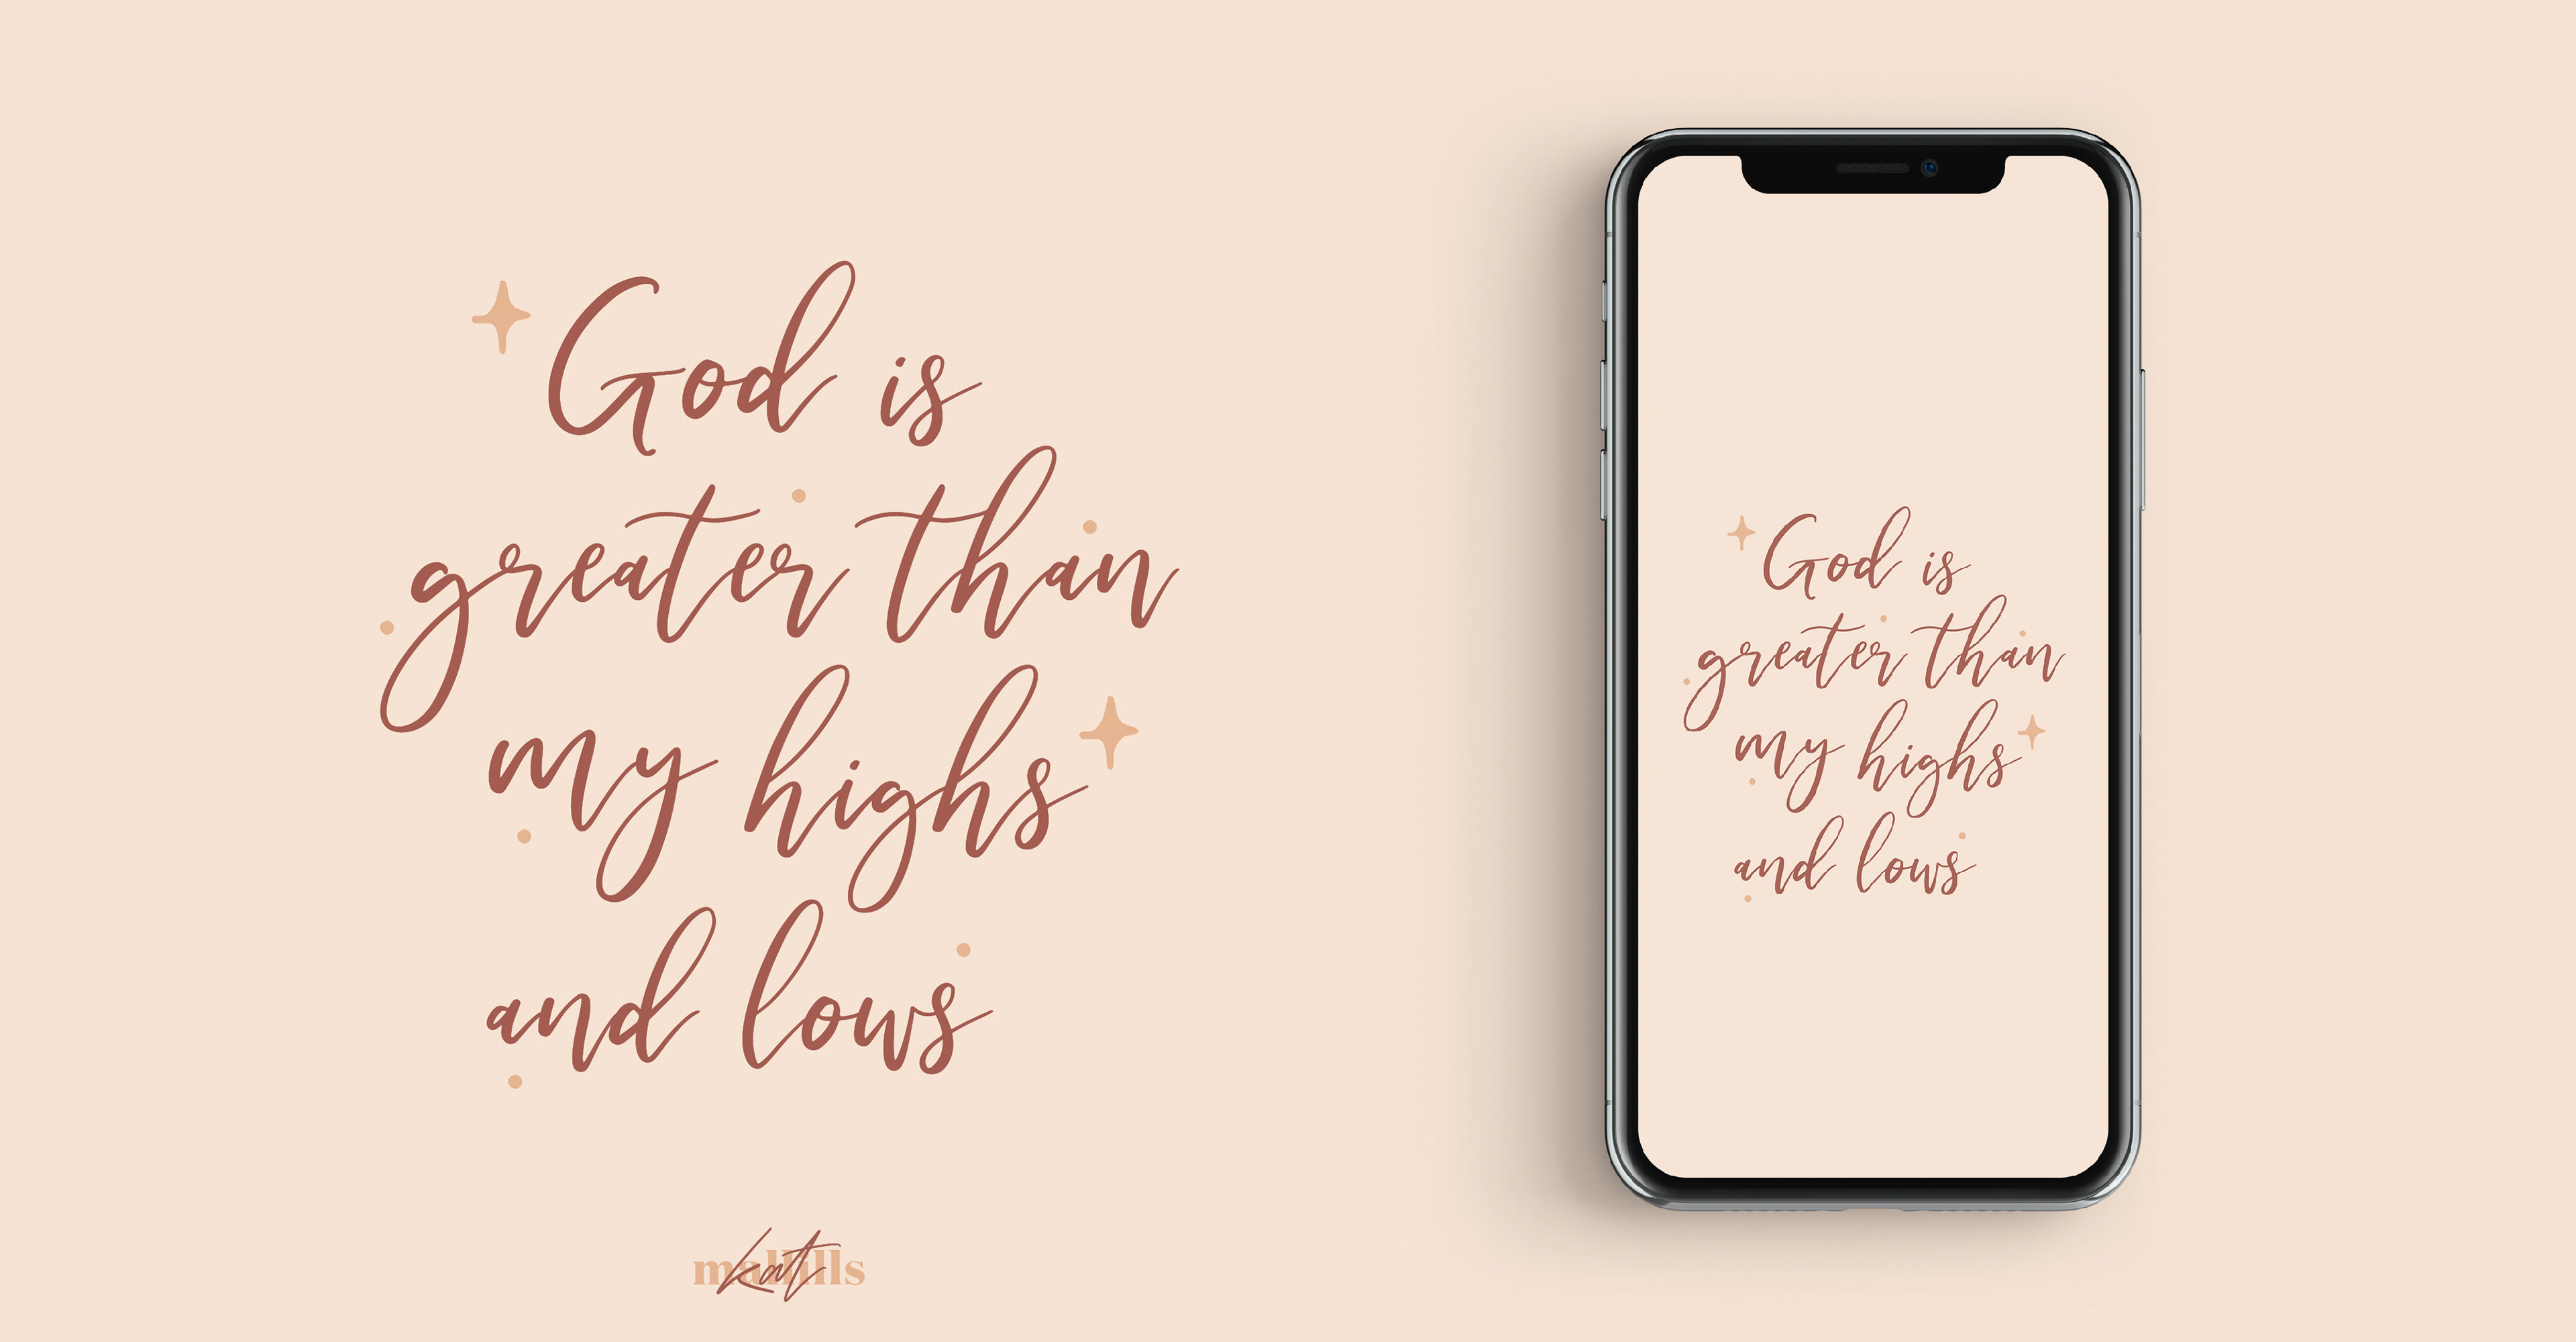 God is
greater than
my highs
and lows
kat
God is
greater than
my highs
and lows